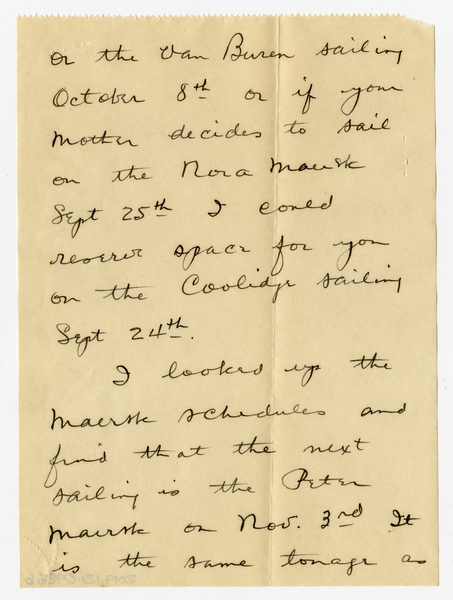 or the Van Buren sailing
October 8th or if your
Mother decides to sail
on the Nora Maersk
Sept 25th I could
reserve space for you
on the Coolidge sailing
Sept 24th.
I looked up the
Maersk schedules and
find that the next
sailing is the Peter
Maersk on Nov. 3rd It
is the same tonage as